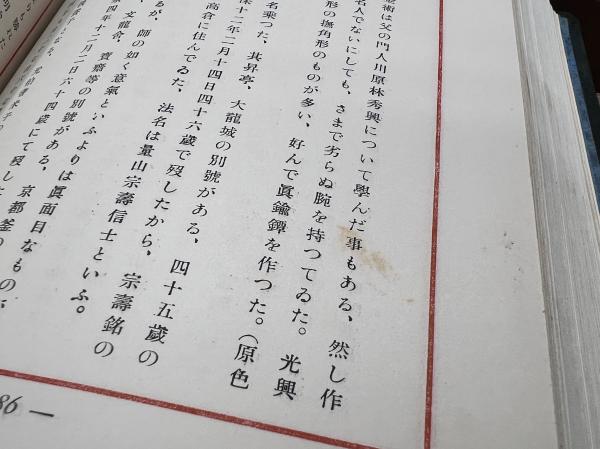 術は父の門人川原林秀興について學んだ事もある、然し作
名人でないにしても、さまで劣らぬ腕を持つてゐた。光興
形の撫角形のものが多い、好んで眞鍮鐔を作つた。(原色
名乘つた、其昇亭、大龍城の別號がある、四十五歲の
十二年二月十四日四十六歲で歿したから、宗壽銘の
高倉に住んでゐた、法名は量山宗壽信士といふ。
るが、師の如く意氣といふよりは眞面目なもので
文龍舍、寶齋等の別號がある、京都釜の
四年十二月二日六十四歲にて歿し
86 —